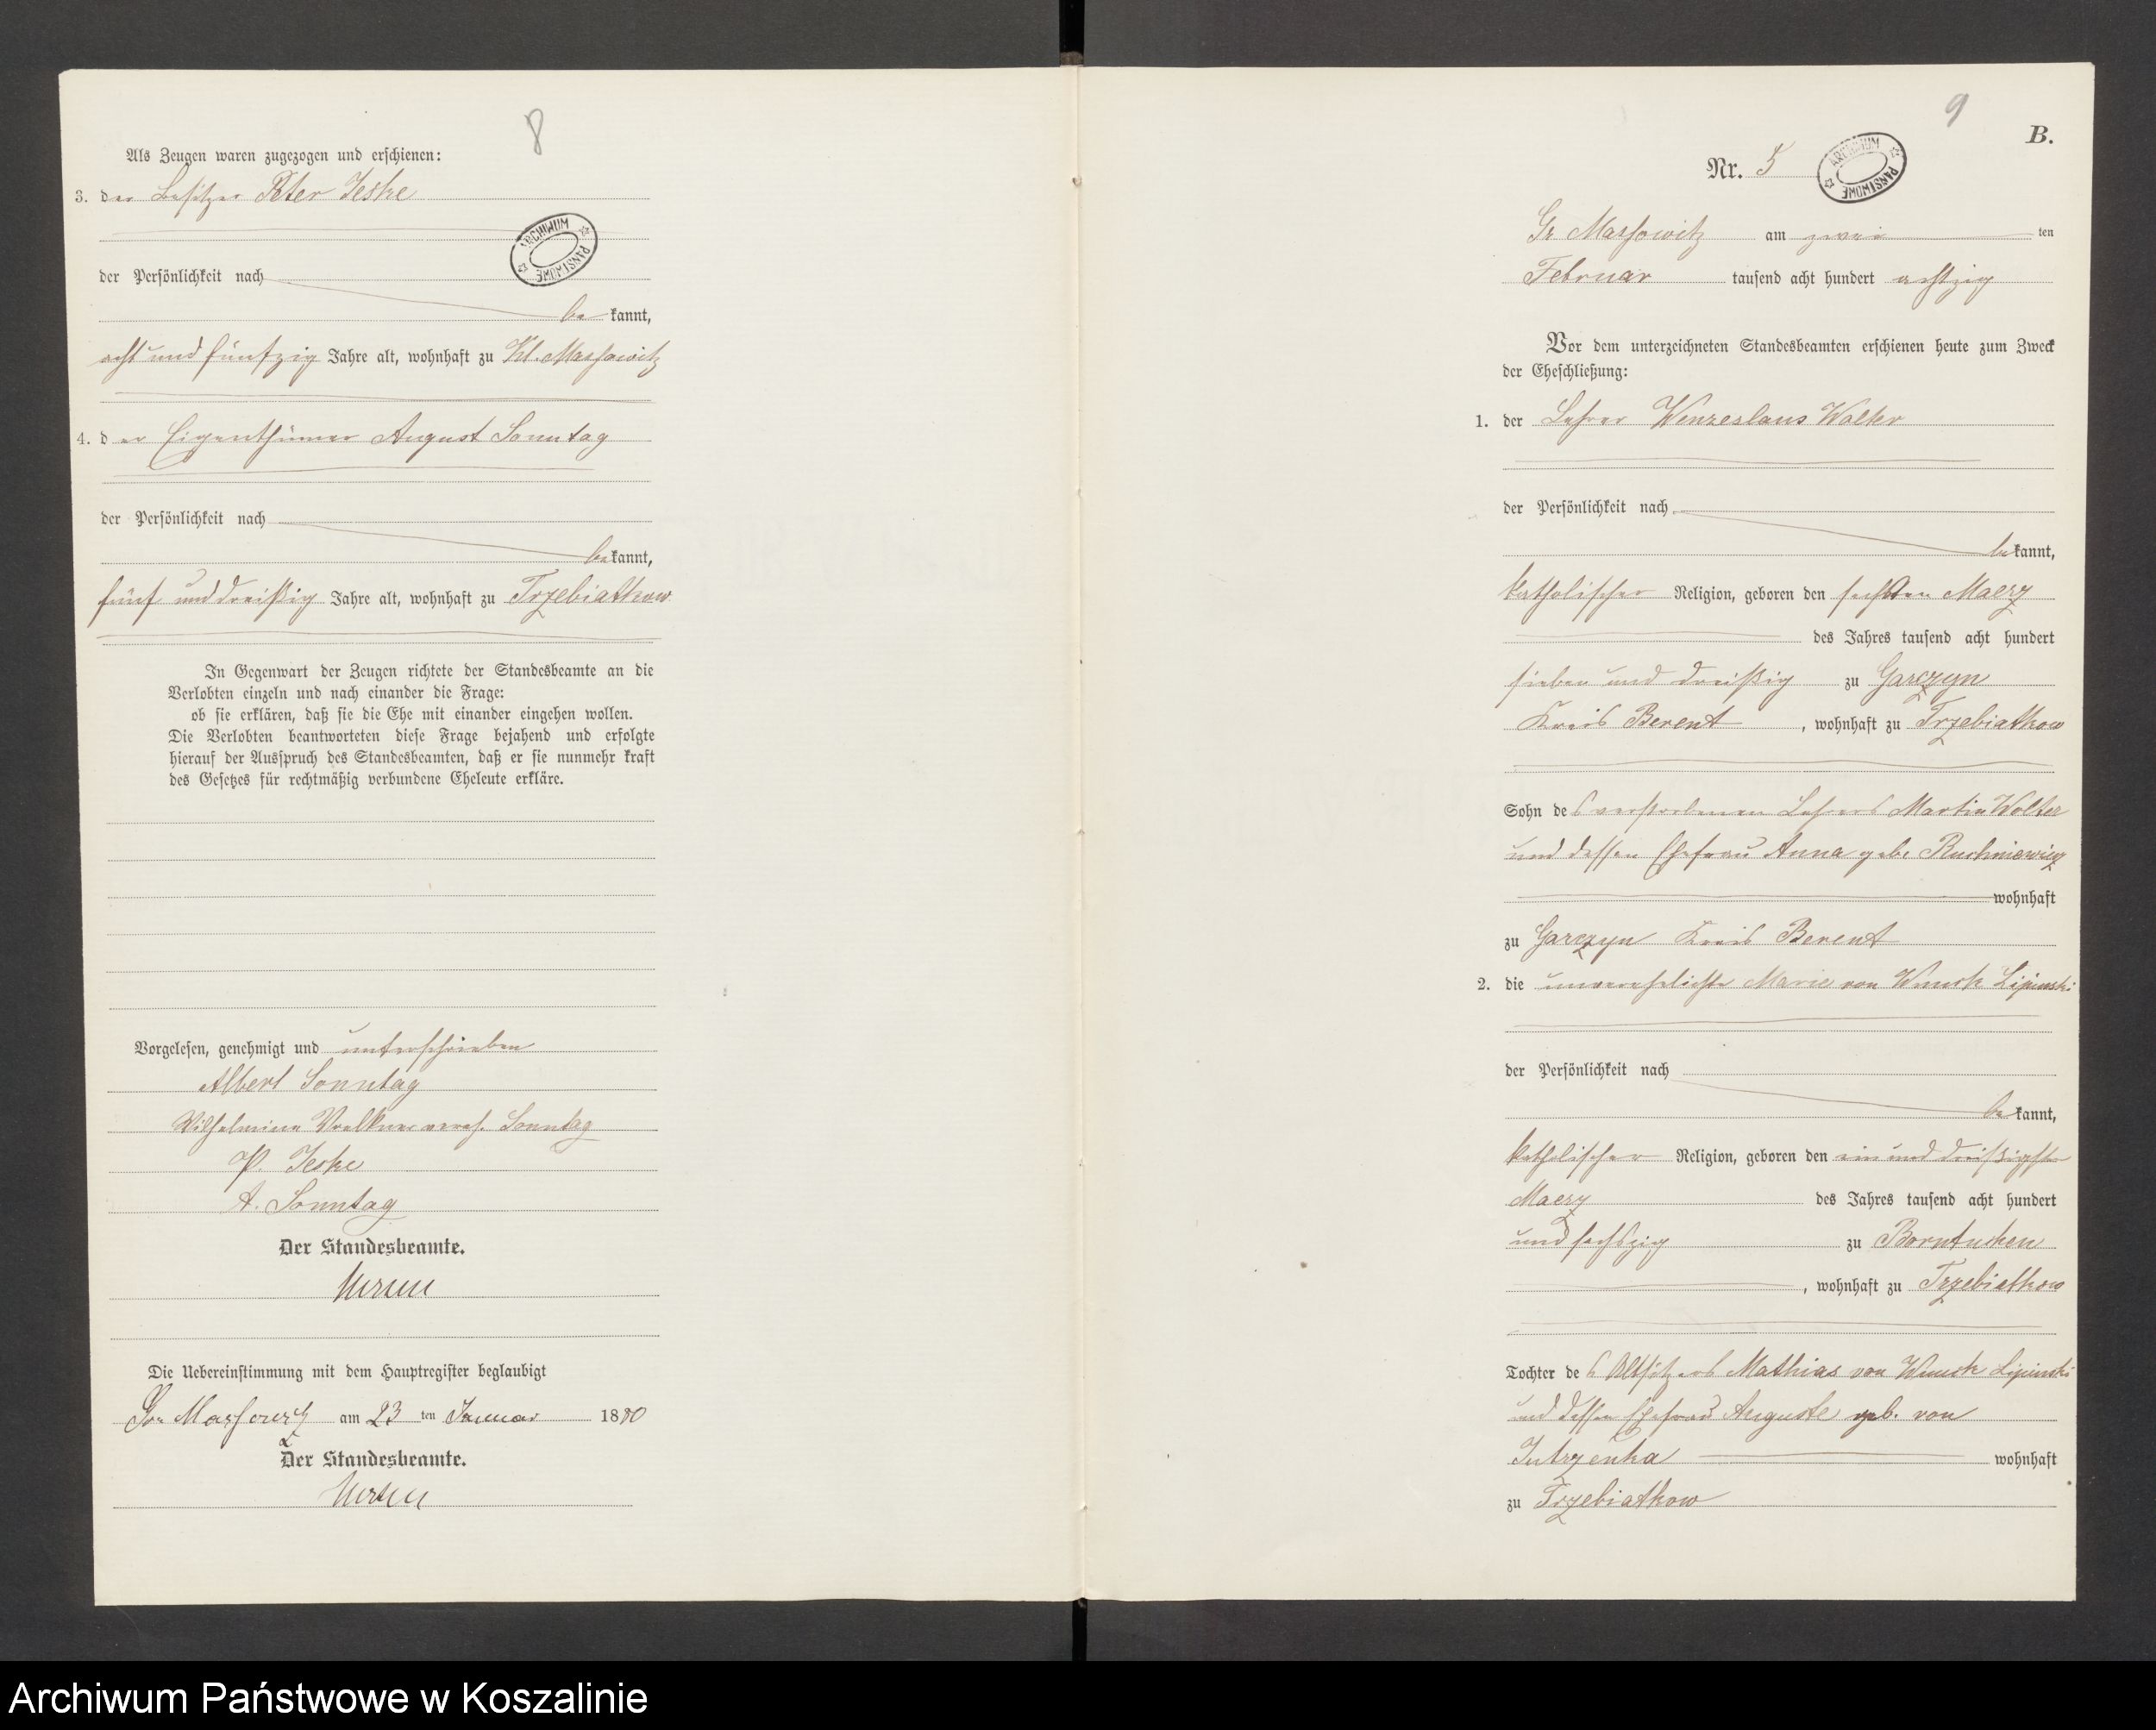 8
Als Zeugen waren zugezogen und erschienen:
3. der Besitzer Peter Jeske
ARCHIWUM PAŃSTWOWE
der Persönlichkeit nach
bekannt,
acht und fünfzig Jahre alt, wohnhaft zu Kl. Massowitz
4. der Eigenthümer August Sonntag
der Persönlichkeit nach
bekannt,
fünf und dreißig Jahre alt, wohnhaft zu Trzebiatkow
In Gegenwart der Zeugen richtete der Standesbeamte an die
Verlobten einzeln und nach einander die Frage:
ob sie erklären, daß sie die Ehe mit einander eingehen wollen.
Die Verlobten beantworteten diese Frage bejahend und erfolgte
hierauf der Ausspruch des Standesbeamten, daß er sie nunmehr kraft
des Gesetzes für rechtmäßig verbundene Eheleute erkläre.
Vorgelesen, genehmigt und unterschrieben
Albert Sonntag
Wilhelmine Voelkner vereh. Sonntag
P. Jeske
A. Sonntag
Der Standesbeamte.
Die Uebereinstimmung mit dem Hauptregister beglaubigt
Gr. Massowitz am 23 ten Januar 1880
Der Standesbeamte.
9
B.
Nr. 5
ARCHIWUM PAŃSTWOWE
Gr. Massowitz am zwei ten
Februar tausend acht hundert achtzig
Vor dem unterzeichneten Standesbeamten erschienen heute zum Zweck
der Eheschließung:
1. der Lehrer Wenzeslaus Wolter
der Persönlichkeit nach
bekannt,
katholischer Religion, geboren den sechsten Maerz
des Jahres tausend acht hundert
sieben und dreißig zu Garczyn
Kreis Berent, wohnhaft zu Trzebiatkow
Sohn des verstorbenen Lehrers Martin Wolter
und dessen Ehefrau Anna gebr
wohnhaft
zu Garczyn Kreis Berent
2. die unverehelichte Marie von Wnuck Lipinski
der Persönlichkeit nach
bekannt,
katholischer Religion, geboren den ein und dreißigsten
Maerz des Jahres tausend acht hundert
und sechszig zu Borntuchen
, wohnhaft zu Trzebiatkow
Tochter des Altsitzers Mathias von Wnuck Lipinski
und dessen Ehefrau Auguste geb. von
Jutrzenka wohnhaft
zu Trzebiatkow
Archiwum Państwowe w Koszalinie